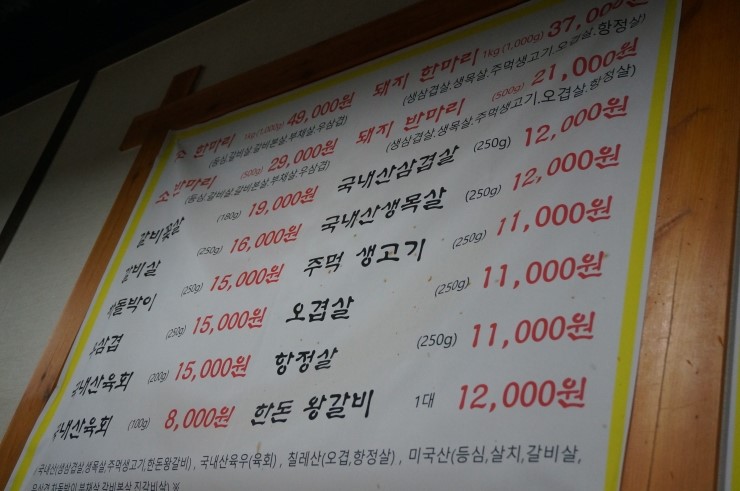 한마리 1kg(1,000g) 49,000원
(등심,갈비살,갈비본살,부채살,우삼겹)
소반마리 (500g) 29,000원
(등심,갈비살,갈비본살,부채살,우삼겹)
갈비꽃살 (180g) 19,000원
갈비살 (250g) 16,000원
차돌박이 (250g) 15,000원
우삼겹 (250g) 15,000원
국내산육회 (200g) 15,000원
국내산육회 (100g) 8,000원
돼지 한마리 1kg(1,000g) 37,000원
(생삼겹살,생목살,주먹생고기,오겹살,항정살)
돼지 반마리 (500g) 21,000원
(생삼겹살,생목살,주먹생고기,오겹살,항정살)
국내산삼겹살 (250g) 12,000원
국내산생목살 (250g) 12,000원
주먹 생고기 (250g) 11,000원
오겹살 (250g) 11,000원
항정살 (250g) 11,000원
한돈 왕갈비 1대 12,000원
(국내산(생삼겹살,생목살,주먹생고기,한돈왕갈비) , 국내산육우(육회) , 칠레산(오겹,항정살) , 미국산(등심,살치,갈비살,
우삼겹,차돌박이,부채살,갈비본살,진갈비살) %